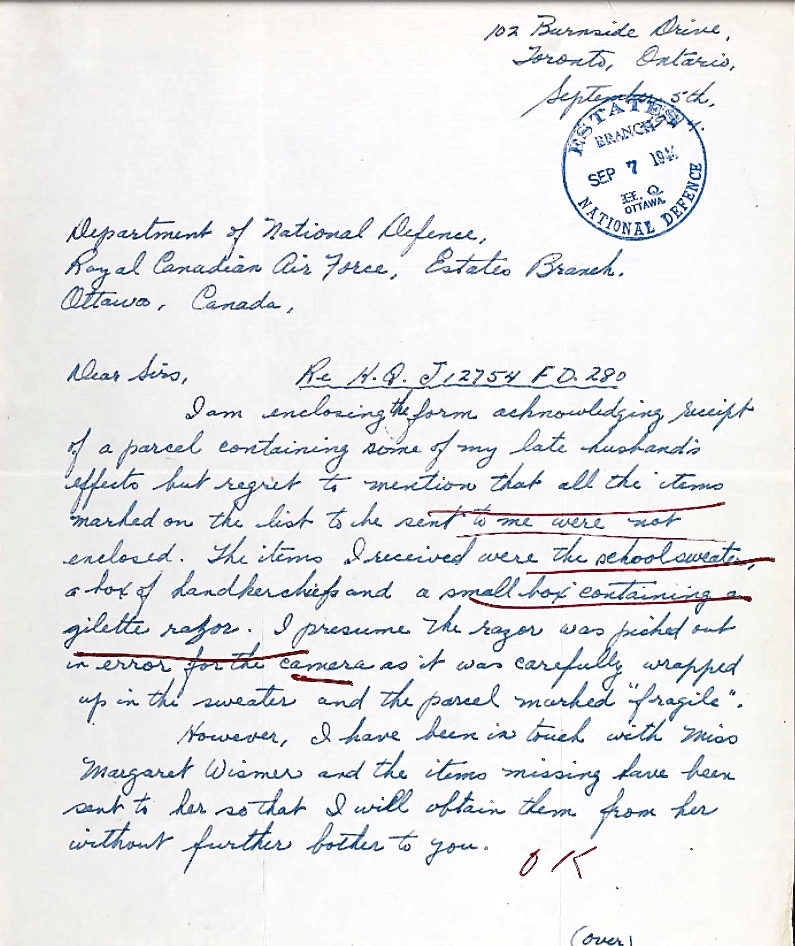 102 Burnside Drive,
Toronto, Ontario,
September 5th,
ESTATES
BRANCH
SEP 7 1944
H. Q.
OTTAWA
NATIONAL DEFENCE
Department of National Defence,
Royal Canadian Air Force, Estates Branch.
Ottawa, Canada,
Dear Sirs, Re H.Q. J12754 F D. 280
I am enclosing the form acknowledging receipt
of a parcel containing some of my late husband's
effects but regret to mention that all the items
marked on the list to be sent to me were not
enclosed. The items I received were the school sweater,
a box of handkerchiefs and a small box containing a
gilette razor. I presume the razor was picked out
in error for the camera as it was carefully wrapped
up in the sweater and the parcel marked "fragile".
However, I have been in touch with Miss
Margaret Wismer and the items missing have been
sent to her so that I will obtain them from her
without further bother to you.
OK
(over)